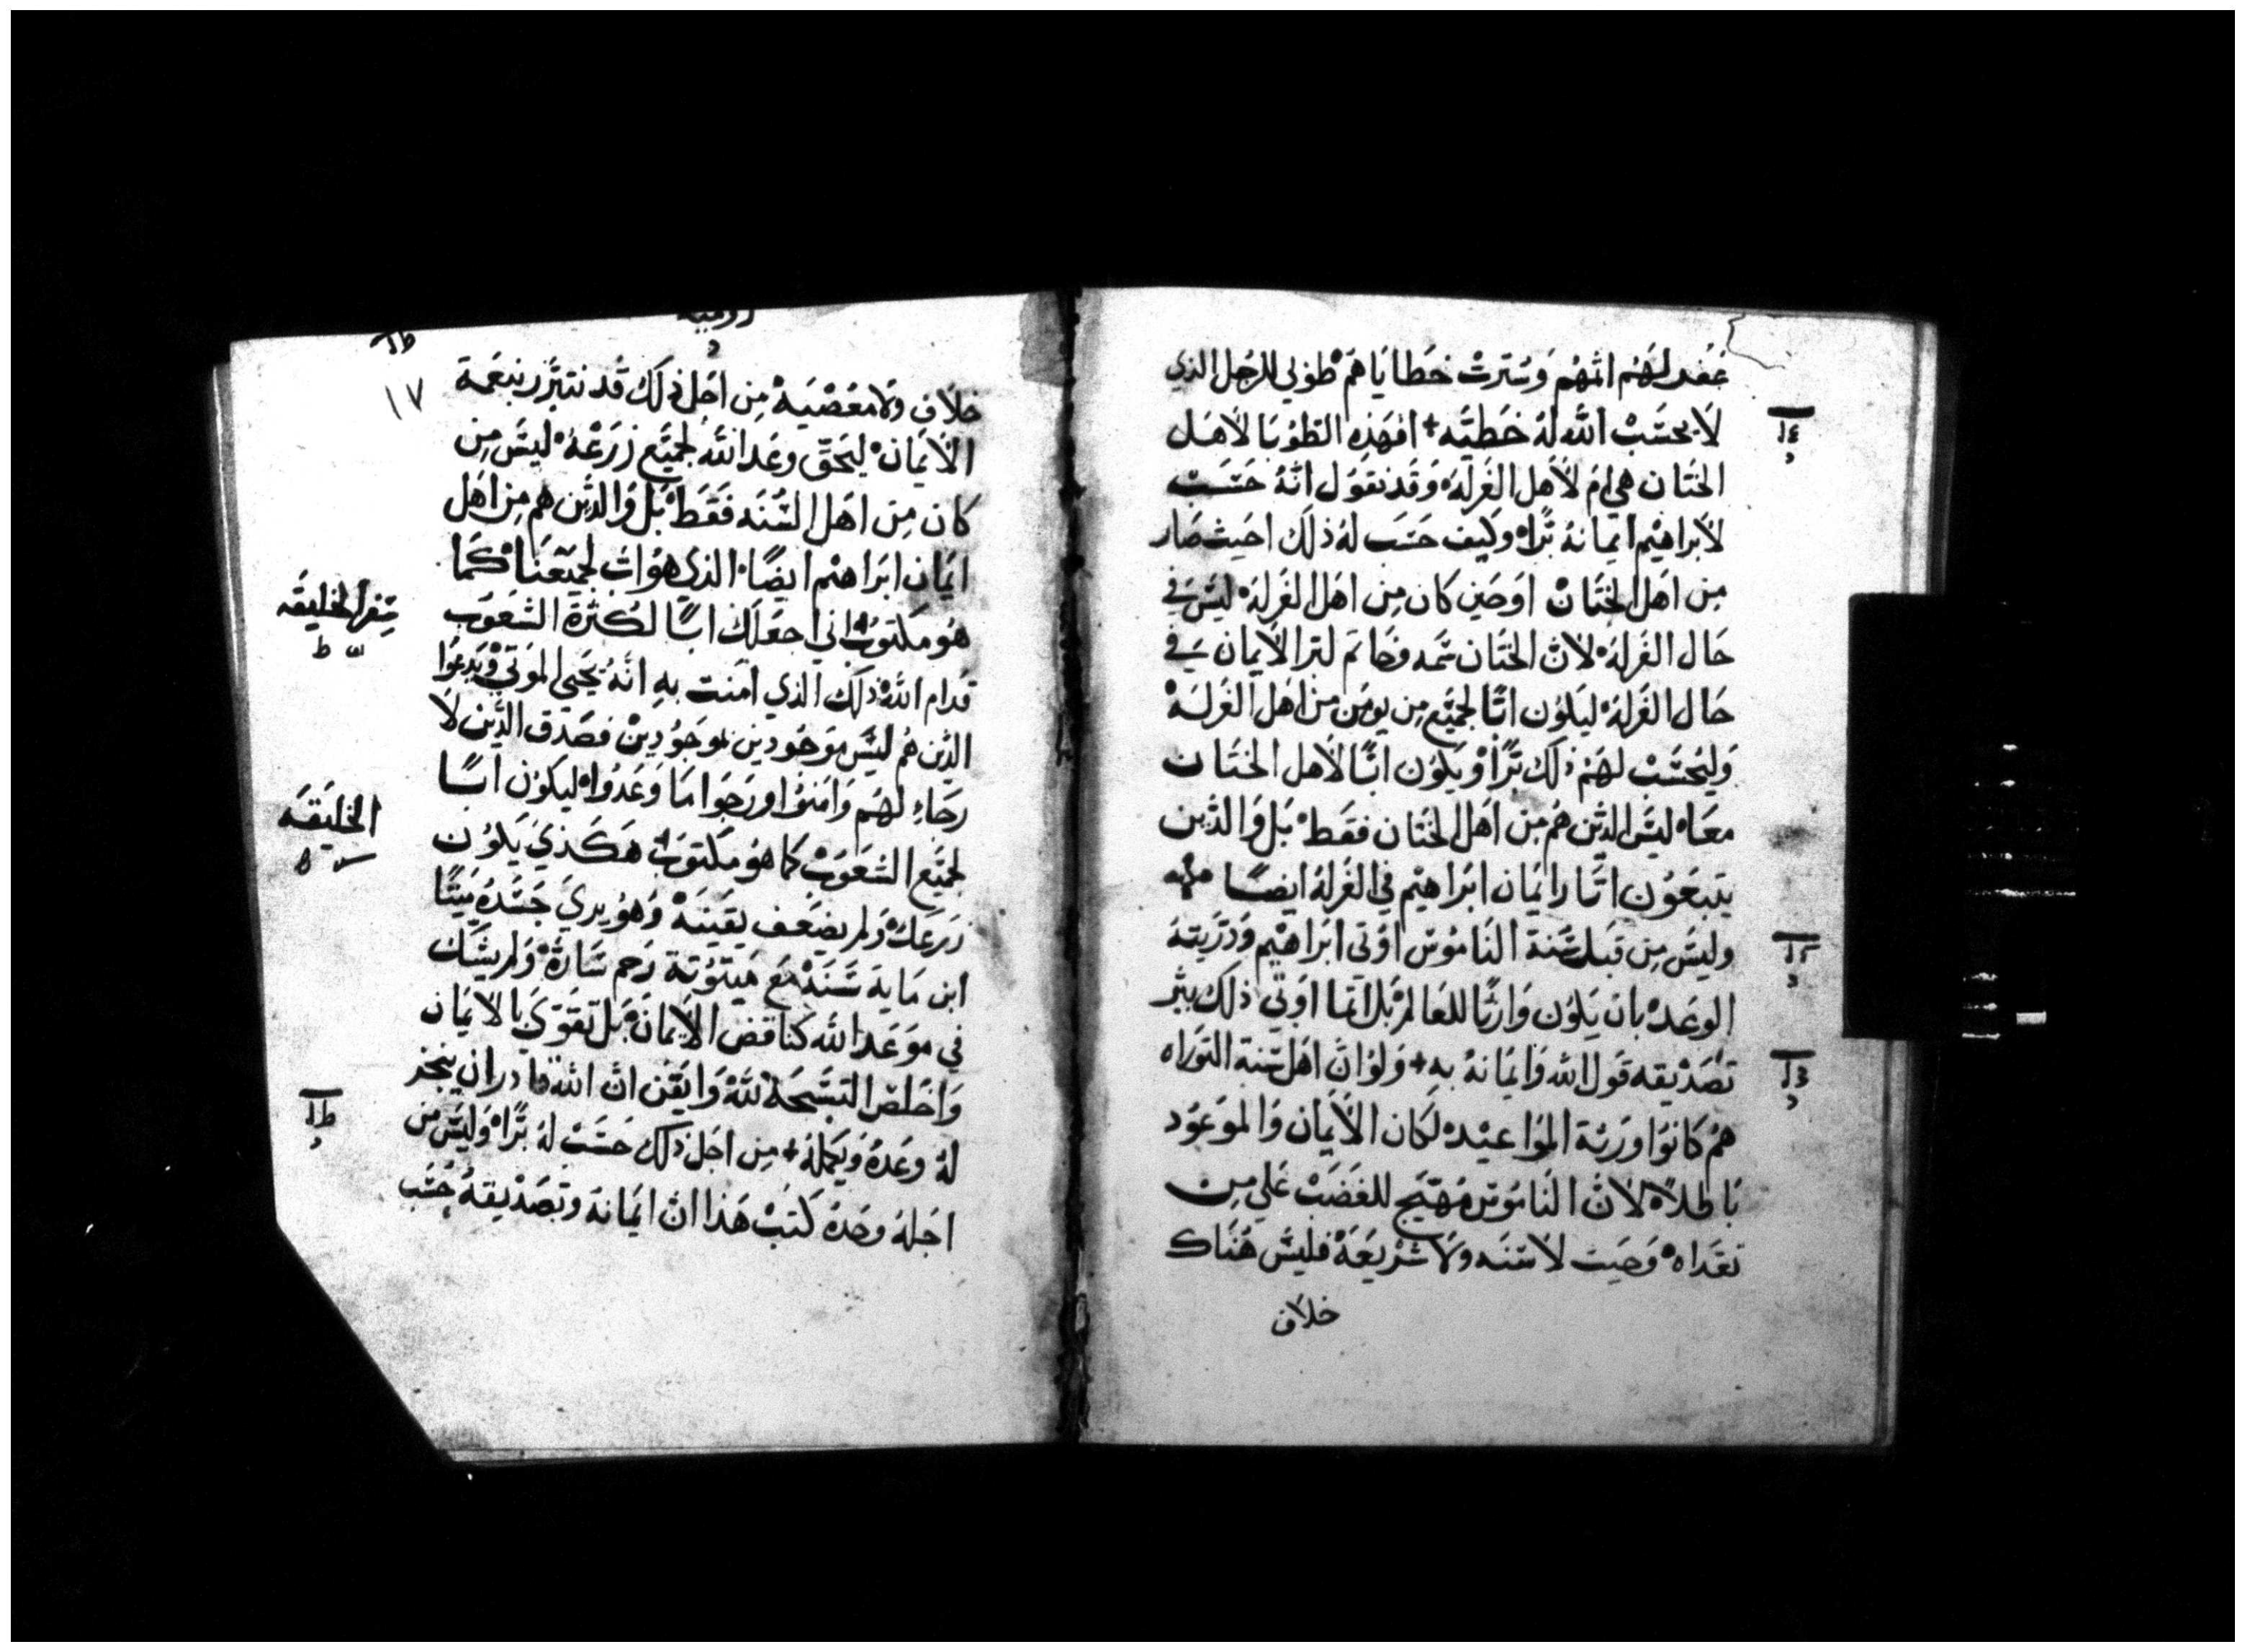 غفر لهم اثمهم وسترت خطاياهم طوبي للرجل الذي
لا يحسب الله له خطيته + افهذه الطوبا لاهل
الختان هي ام لاهل الغرله وقد نقول انه حسب
لابراهيم ايمانه برًا وكيف حسب له ذلك احيث صار
من اهل الختان او حين كان من اهل الغرله ليس في
حال الغرله لان الختان سمه وخاتم لبر الايمان في
حال الغرله ليكون ابًا لجميع من يومن من اهل الغرله
وليحسب لهم ذلك برًا ويكون ابًا لاهل الختان
معاه ليس الذين هم من اهل الختان فقط بل والذين
يتبعون اثار ايمان ابراهيم في الغرله ايضًا
وليس من قبل سنة الناموس اوتي ابراهيم وذريته
الوعد بان يكون وارثًا للعالم بل انما اوتي ذلك ببر
تصديقه قول الله وايمانه به + ولو ان اهل سنة التوراه
هم كانوا ورثة المواعيد لكان الايمان والموعود
باطلاً لان الناموس مهيج للغضب علي من
تعداه وحيث لا سنه ولا شريعه فليس هناك
خلاف
١٧
خلاف ولا معصيه من اجل ذلك قد نتبرر بنعمة
الايمان ليحق وعد الله لجميع زرعه ليس من
كان من اهل السنه فقط بل والذين هم من اهل
ايمان ابراهيم ايضًا الذي هو اب لجميعنا كما
هو مكتوب اني اجعلك ابًا لكثرة الشعوب
سفر الخليقه
قدام الله ذلك الذي امنت به انه يحيي الموتي ويدعوا
الذين هم ليس موجودين موجودين فصدق الذين لا
رجاء لهم وامنوا ورجوا ما وعدوا ليكون ابًا
الخليقه
لجميع الشعوب كما هو مكتوب هكذي يكون
زرعك ولم يضعف يقينه وهو يري جسده ميتًا
ابن ماية سنه مع ميتوتة رحم ساره ولم يشك
في موعد الله كناقض الايمان بل تقوي بالايمان
واخلص التسبحة لله وايقن ان الله قادر ان ينجز
له وعده ويكمله + من اجل ذلك حسب له برًا وليس من
اجله وحده كتب هذا ان ايمانه وتصديقه حسب